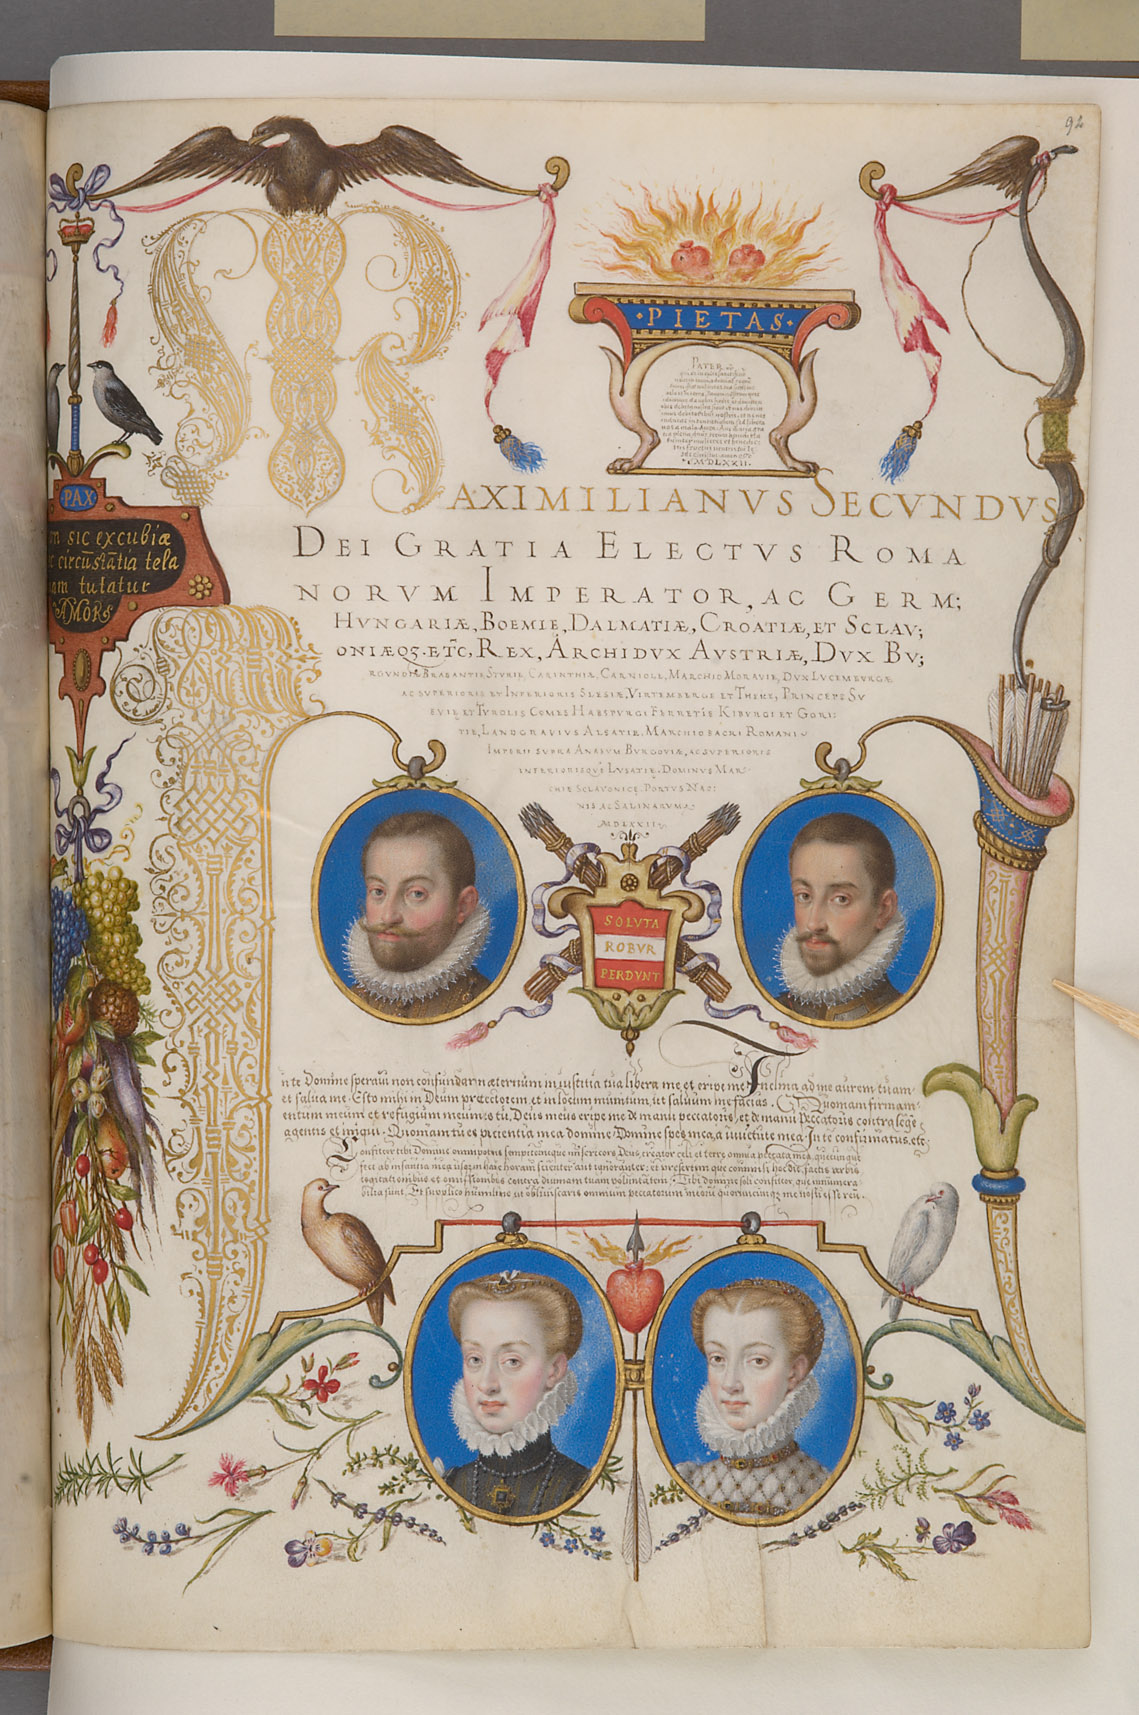 92
PIETAS
PATER
MDLXXII
MAXIMILIANVS SECVNDVS
DEI GRATIA ELECTVS ROMA
NORVM IMPERATOR, AC GERM;
HVNGARIÆ, BOEMIE, DALMATIÆ, CROATIÆ, ET SCLAV;
ONIÆQ3. ETC̃, REX, ARCHIDVX AVSTRIÆ, DVX BV;
RGVNDIÆ BRABANTIE STYRIE CARINTHIÆ, CARNIOLE, MARCHIO MORAVIE, DVX LVCEMBVRGÆ
AC SVPERIORIS ET INFERIORIS SLESIÆ, VIRTEMBERGE ET THEKE, PRINCEPS SV
EVIE ET TYROLIS COMES HABSPVRGI FERRETIS KIBVRGI ET GORI:
TIE, LANDGRAVIVS ALSATIE, MARCHIO SACRI ROMANI
IMPERII SVPRA ANASVM BVRGOVIÆ, AC SVPERIORIS
INFERIORISQVE LVSATIE. DOMINVS MAR
CHIE SCLAVONICE, PORTVS NAO:
NIS AC SALINARVM
MDLXXII
PAX
sic excubiæ
circūstātia tela
tutatur
AMOR
SOLVTA
ROBVR
PERDVNT
In te Domine speravi non confundar in æternum in justitia tua libera me et eripe me Inclina ad me aurem tuam
et salva me. Esto mihi in Deum protectorem et in locum munitum, ut salvum me facias. Quoniam firmam
entum meum et refugium meum es tu. Deus meus eripe me de manu peccatoris, et de manu peccatoris contra lege
agentis et iniqui. Quoniam tu es patientia mea domine, Domine spes mea, a iuventute mea. In te confirmatus, etc
Confiteor tibi Domine omnipotens sempiterneque misericors Deus, creator celi et terre omnia peccata mea, quecunque
feci ab infantia mea usque in hanc horam scienter aut ignoranter; et presertim que commisi hoc die, factis verbis
cogitationibus et omissionibus contra divinam tuam voluntatem. Tibi domine soli confiteor, que innumera
bilia sunt. Et supplico humiline ut obliviscaris omnium peccatorum meorum quorumcumque me nosti esse reum